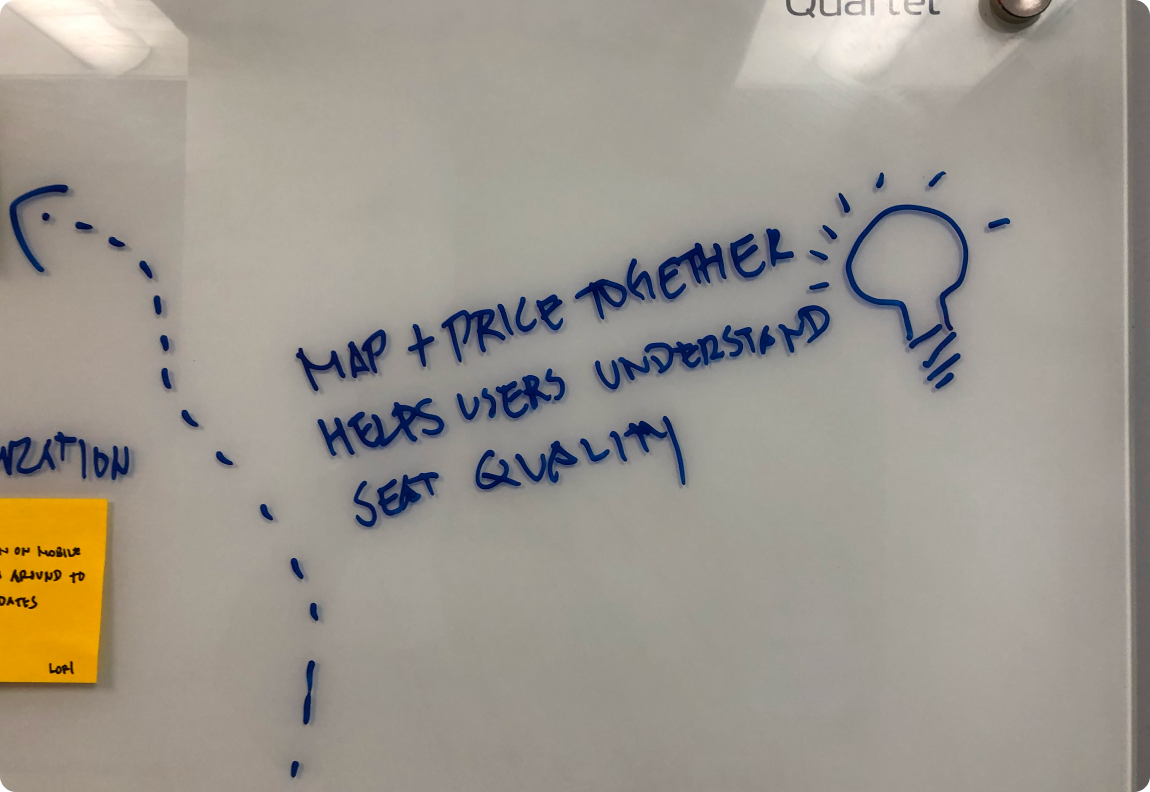 Quartet
MAP + PRICE TOGETHER
HELPS USERS UNDERSTAND
SEAT QUALITY
ON MOBILE
AROUND TO
LORI